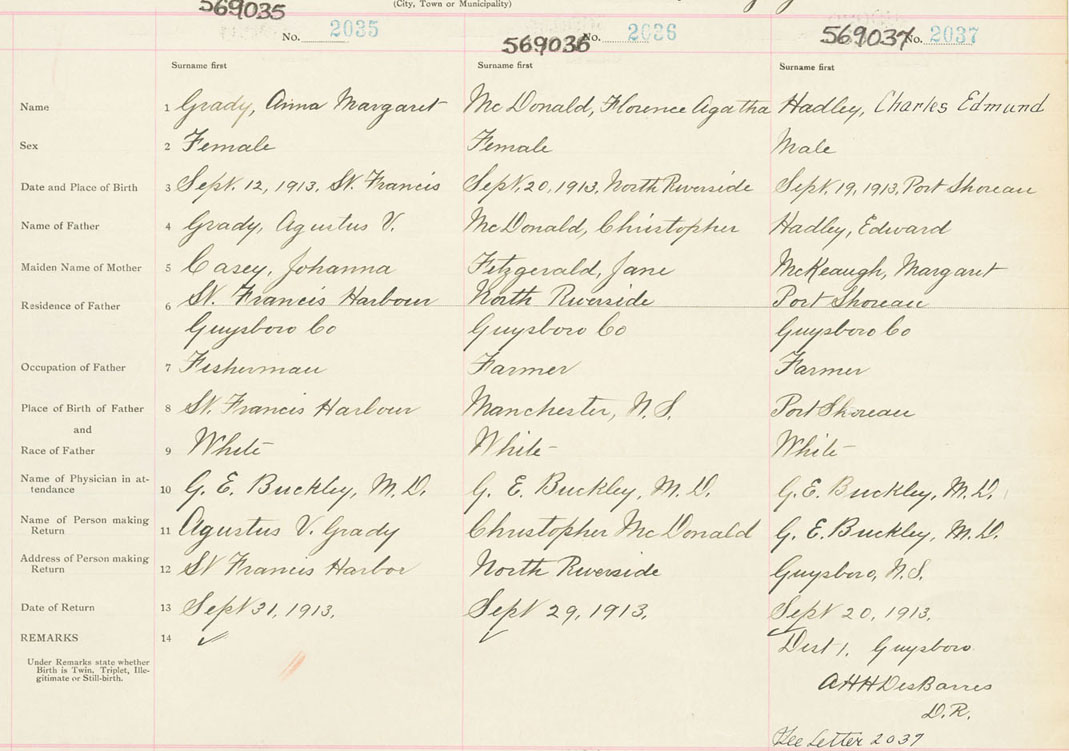 (City, Town or Municipality)
569035 No. 2035 569036 No. 2036 569037 No. 2037
Surname first Surname first Surname first
Name 1 Grady, Anna Margaret Mc Donald, Florence Agatha Hadley, Charles Edmund
Sex 2 Female Female Male
Date and Place of Birth 3 Sept. 12, 1913, St. Francis Sept. 20, 1913, North Riverside Sept. 19, 1913, Port Shoreau
Name of Father 4 Grady, Agustus V. McDonald, Christopher Hadley, Edward
Maiden Name of Mother 5 Casey, Johanna Fitzgerald, Jane McKeaugh, Margaret
Residence of Father 6 St. Francis Harbour North Riverside Port Shoreau
Guysboro Co Guysboro Co Guysboro Co
Occupation of Father 7 Fisherman Farmer Farmer
Place of Birth of Father 8 St. Francis Harbour Manchester, N.S. Port Shoreau
and
Race of Father 9 White White White
Name of Physician in at-
tendance 10 G. E. Buckley, M.D. G. E. Buckley, M.D. G.E. Buckley, M.D.
Name of Person making
Return 11 Agustus V. Grady Christopher Mc Donald G. E. Buckley, M.D.
Address of Person making
Return 12 St Francis Harbor North Riverside Guysboro, N.S.
Date of Return 13 Sept 31, 1913. Sept 29, 1913. Sept 20, 1913.
REMARKS 14 ✓ Dist 1, Guysboro
Under Remarks state whether
Birth is Twin, Triplet, Ille-
gitimate or Still-birth.
AHH DesBarres
D.R.
See Letter 2037